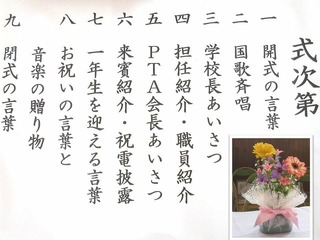 式次第
一 開式の言葉
二 国歌斉唱
三 学校長あいさつ
四 担任紹介・職員紹介
五 PTA会長あいさつ
六 来賓紹介・祝電披露
七 一年生を迎える言葉
八 お祝いの言葉と
音楽の贈り物
九 閉式の言葉